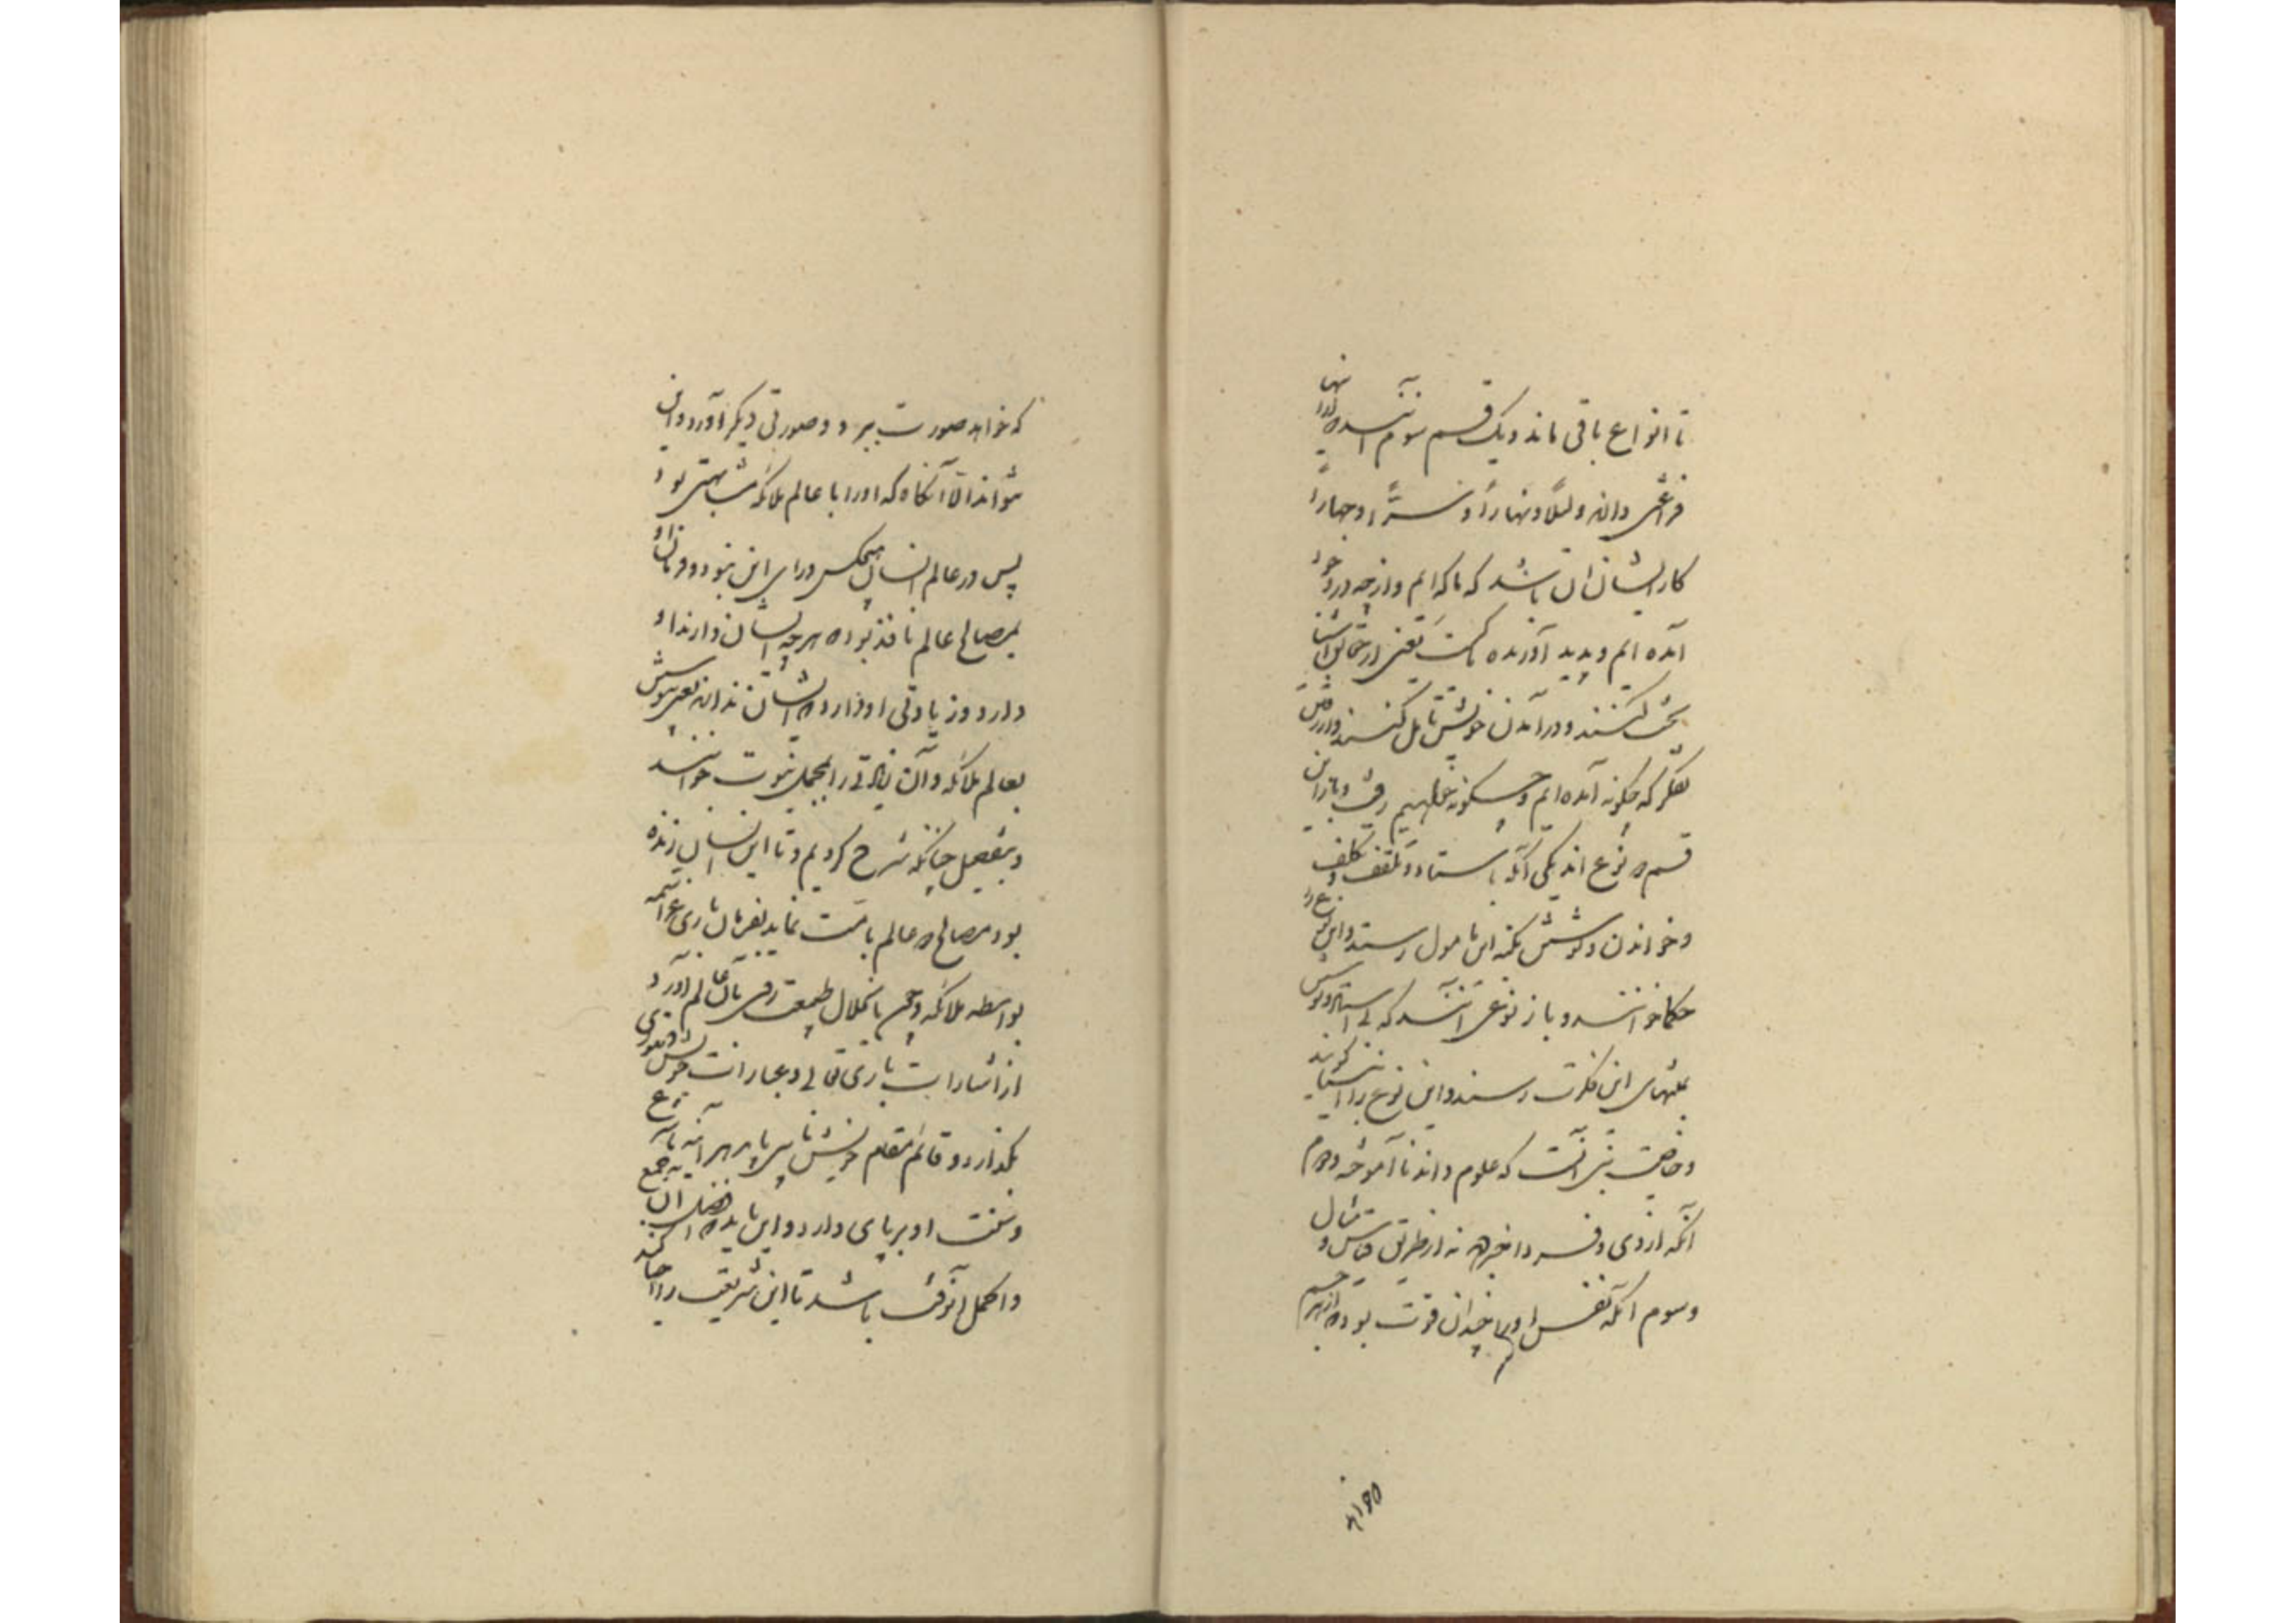 تا انواع باقی ماند و یک قسم سوم آنند که ایشانرا
فراغتی دارند و لیلاً و نهاراً و سراً و جهاراً
کار ایشان آن باشد که ما که ایم و از چه در وجود
آمده ایم و پدید آورنده ما کیست یعنی از حقایق اشیا
بحث کنند و در آمدن خویش تامل کنند و از رفتن
تفکر که چگونه آمده ایم و چگونه بخواهیم رفت و باز این
قسم دو نوع اند یکی آنکه باستاد و تلقف و تکلف
و خواندن و کوشش بکنه این مامول رسند و این نوع را
حکما خوانند و باز نوعی آنند که بی استاد و نوشتن
بمنتهای این فکرت رسند و این نوع را انبیا گویند
و خاصیت نبی آنست که علوم داند نا آموخته و دوم
آنکه از دی و فردا خبر دهد نه از طریق قیاس و مثال
و سوم آنکه نفس او را چندان قوت بود که از هر جسم
که خواهد صورت ببرد و صورتی دیگر آورد و این
نتواند الا آنکاه که او را با عالم ملائکه مشابهتی بود
پس در عالم انسان هیچکس ورای این نبود و فرمان او
بمصالح عالم نافذ بود که هر چه ایشان دارند او
دارد و زیادتی او دارد که ایشان ندارند یعنی پیوستن
بعالم ملائکه و آن زیادتی را بمجمل نبوت خوانند
و بتفصیل چنانکه شرح کردیم و تا این انسان زنده
بود مصالح دو عالم بامت نماید بفرمان باری عز اسمه
بواسطه ملائکه و چون بانحلال طبیعت روی بآن عالم آورد
از اشارات باری تعالی و عبارات خویش دستوری
بگذارد و قائم مقام خویش نایبی باید هر آینه تا شرع
و سنت او بر پای دارد و این باید که افضل آن جمع
و اکمل آن وقت باشد تا این شریعت را احیا کند